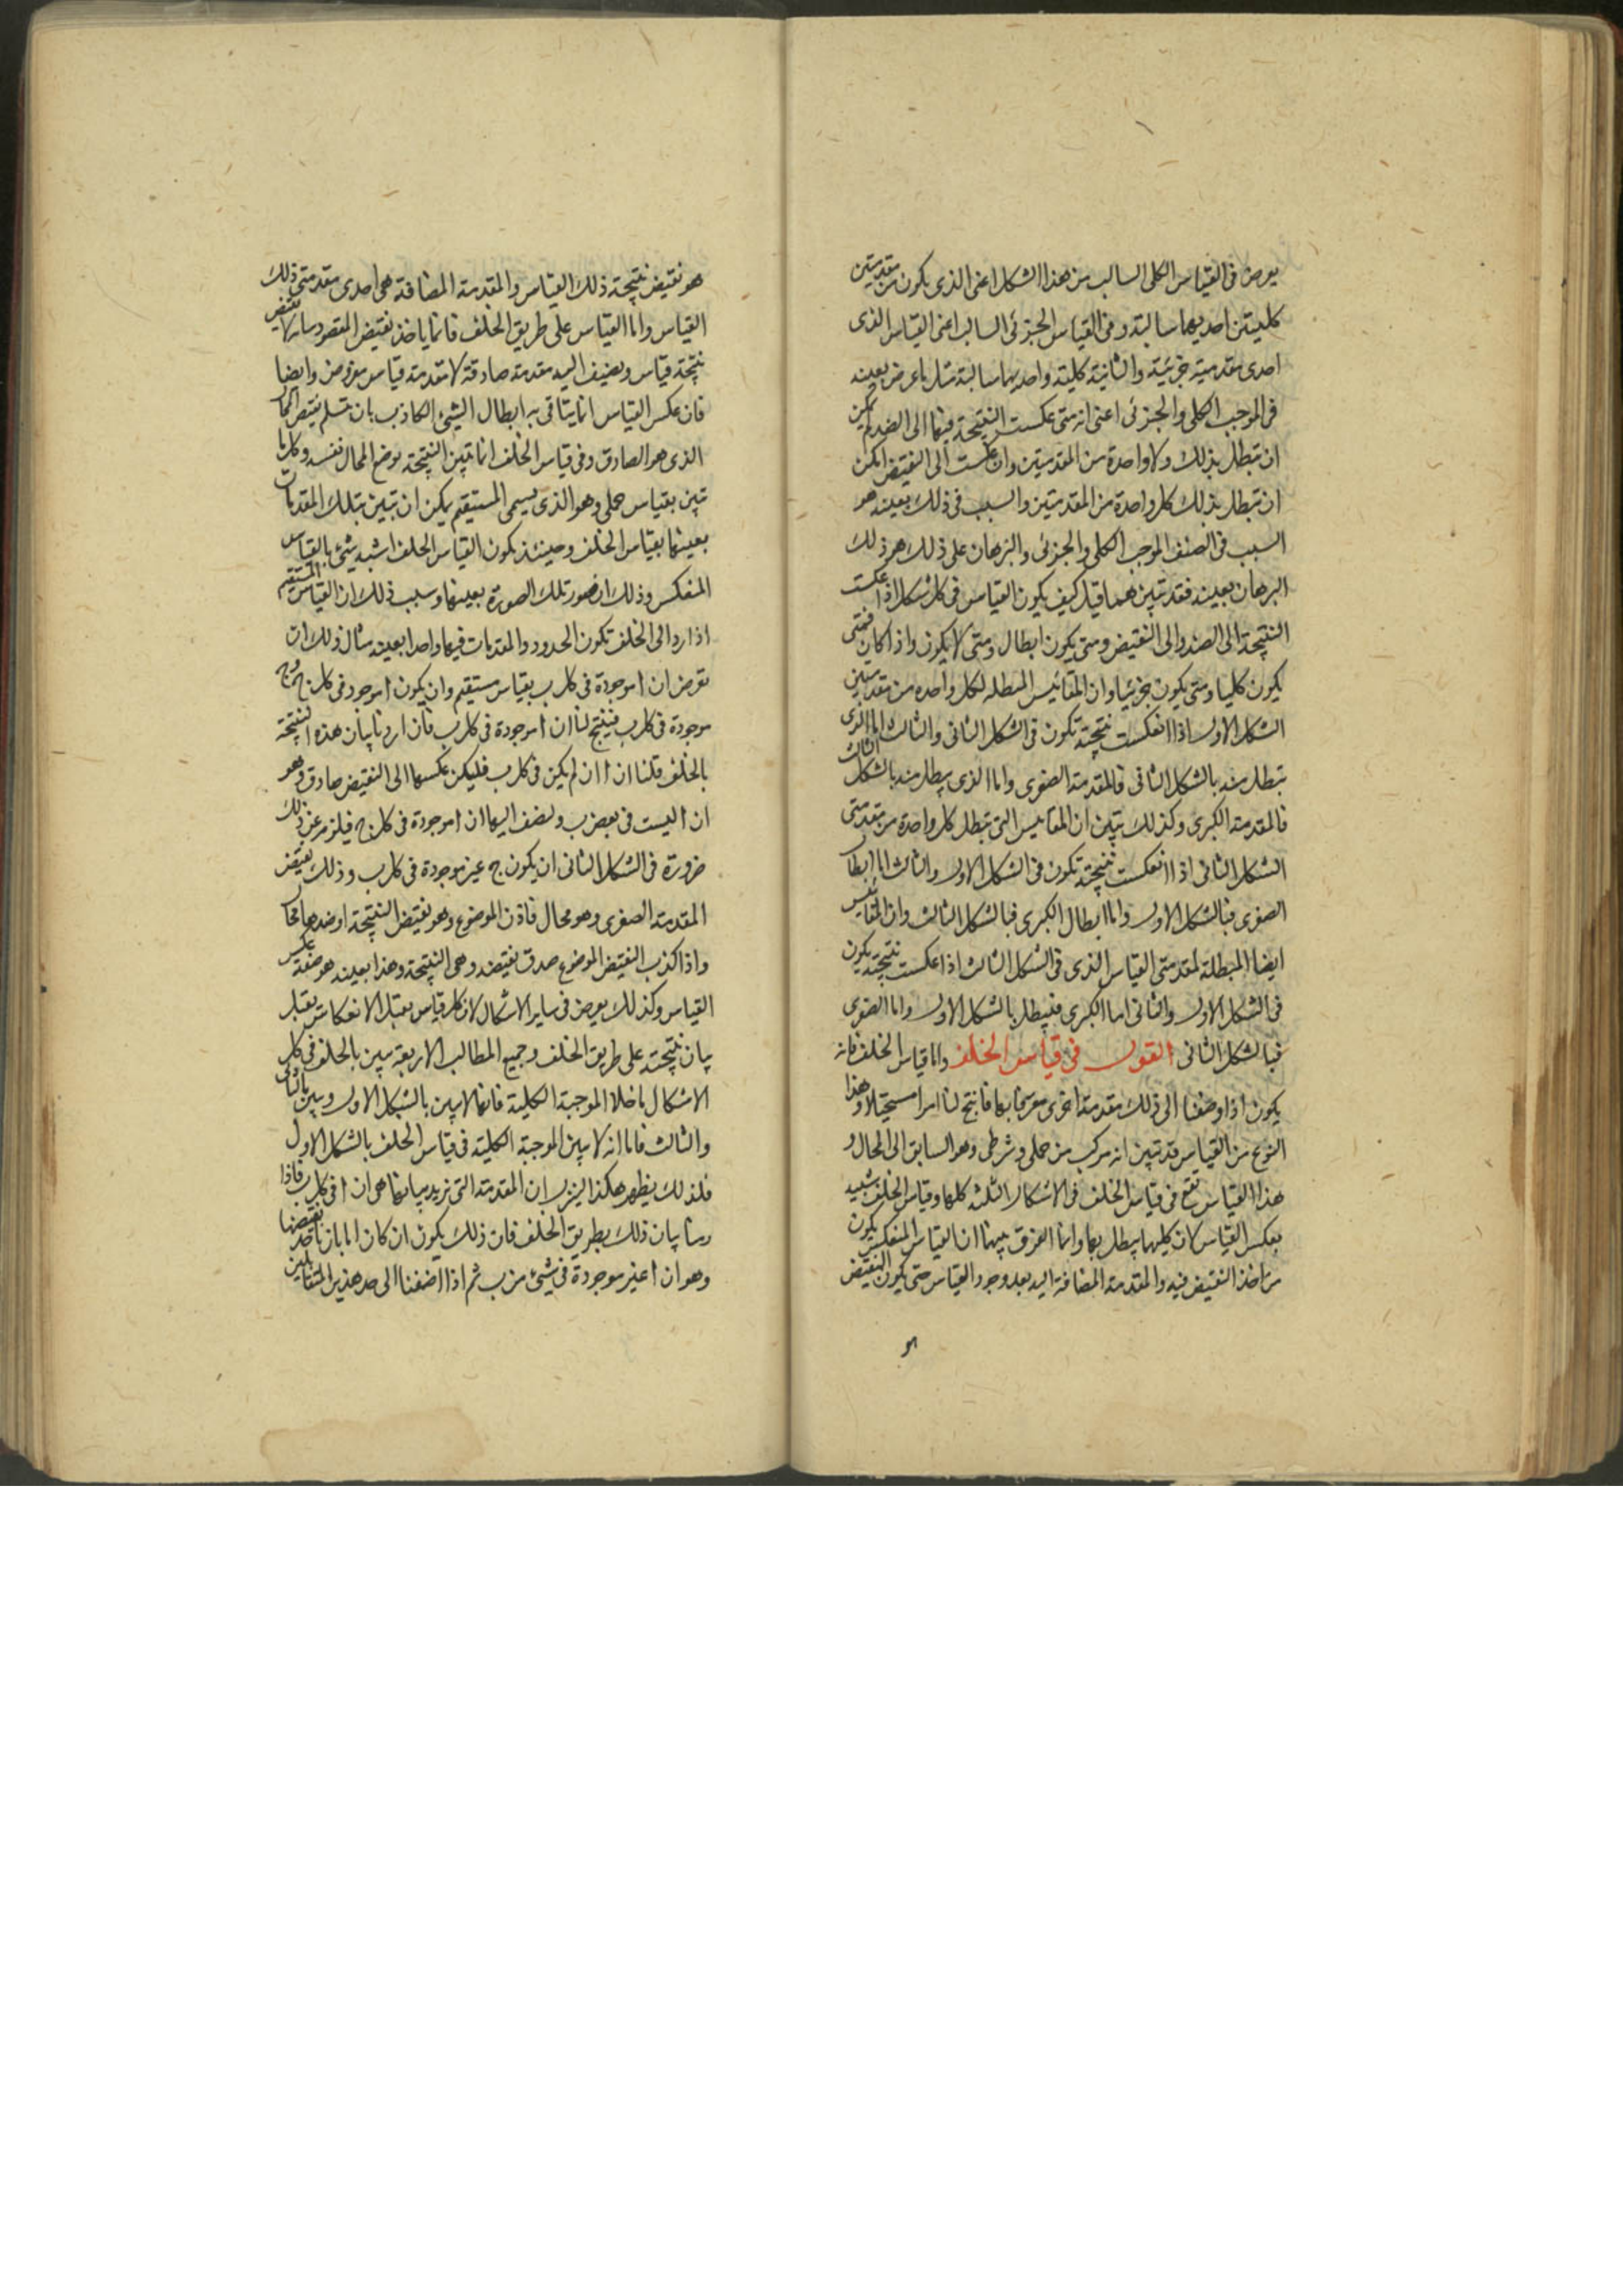 يعرض فى القياس الكلى السالب من هذا الشكل اعنى الذى يكون من مقدمتين
كليتين احديهما سالبة وفى القياس الجزئى السالب اعنى القياس الذى
احدى مقدمتيه جزئية والثانية كلية واحديهما سالبة مثل ما عرض بعينه
فى الموجب الكلى والجزئى اعنى انه متى عكست النتيجة فيها الى الضد لم يمكن
ان تبطل بذلك ولا واحدة من المقدمتين وان عكست الى النقيض امكن
ان تبطل بذلك كل واحدة من المقدمتين والسبب فى ذلك بعينه هو
السبب فى الصنف الموجب الكلى والجزئى والبرهان على ذلك هو ذلك
البرهان بعينه فقد تبين مما قيل كيف يكون القياس فى كل شكل اذا عكست
النتيجة الى الضد والى النقيض ومتى يكون ابطال ومتى لا يكون واذا كان فمتى
يكون كليا ومتى يكون جزئيا وان المقائيس المبطله لكل واحده من مقدمتين
الشكل الاول اذا انعكست نتيجته تكون فى الشكل الثانى والثالث اما الذى
تبطل منه بالشكل الثانى فالمقدمة الصغرى واما الذى يبطل منه بالشكل الثالث
فالمقدمة الكبرى وكذلك تبين ان المقاييس التى تبطل كل واحدة من مقدمتى
الشكل الثانى اذا انعكست نتيجته تكون فى الشكل الاول والثالث اما ابطال
الصغرى فبالشكل الاول واما ابطال الكبرى فبالشكل الثالث وان المقائيس
ايضا المبطلة لمقدمتى القياس الذى فى الشكل الثالث اذا عكست نتيجته يكون
فى الشكل الاول والثانى اما الكبرى فيبطل بالشكل الاول واما الصغرى
فبالشكل الثانى القول فى قياس الخلف واما قياس الخلف فانه
يكون اذا وضفنا الى ذلك مقدمة اخرى معترفا بها فانتج لنا امرا مستحيلا وهذا
النوع من القياس قد تبين انه مركب من حملى وشرطى وهو السابق الى المحال و
هذا القياس تقع فى قياس الخلف فى الاشكال الثلثه كلها وقياس الخلف شبيه
بعكس القياس لان كليهما يبطل بها وانما الفرق بينهما ان القياس المنعكس يكون
من اخذ النقيض فيه والمقدمة المضافة اليه بعد وجود القياس حتى يكون النقيض
هو
هو نقيض نتيجة ذلك القياس والمقدمة المضافة هى احدى مقدمتى ذلك
القياس واما القياس على طريق الخلف فانما ياخذ نقيض المقصود بيانه لا نقيض
نتيجة قياس ويضيف اليه مقدمة صادقة لا مقدمة قياس مفروض وايضا
فان عكس القياس انما يتاتى به ابطال الشئ الكاذب بان تسلم نقيض المحال
الذى هو الصادق وفى قياس الخلف انما تبين النتيجة بوضع المحال نفسه وكل ما
تبين بقياس حملى وهو الذى يسمى المستقيم يمكن ان تبين بتلك المقدمات
بعينها بقياس الخلف وحينئذ يكون القياس الخلف اشبه شئ بالقياس
المنعكس وذلك ان صورته تلك الصورة بعينها وسبب ذلك ان القياس المستقيم
اذا رد الى الخلف تكون الحدود والمقدمات فيهما واحدا بعينه مثال ذلك ان
نفرض ان ا موجودة فى كل ب بقياس مستقيم وان يكون ا موجود فى كل ج و ج
موجودة فى كل ب فينتج لنا ان ا موجودة فى كل ب فان اردنا بيان هذه النتيجة
بالخلف قلنا ان ا ان لم يكن فى كل ب فليكن عكسها الى النقيض صادق وهو
ان ا ليست فى بعض ب ونضف اليها ان ا موجودة فى كل ج فيلزم عن ذلك
ضرورة فى الشكل الثانى ان يكون ج غير موجودة فى كل ب وذلك نقيض
المقدمة الصغرى وهو محال فاذن الموضوع وهو نقيض النتيجة او ضدها محال
واذا كذب النقيض الموضوع صدق نقيضه وهى النتيجة وهذا بعينه هو صنعة عكس
القياس وكذلك يعرض فى ساير الاشكال لان كل قياس يقبل الانعكاس يقبل
بيان نتيجته على طريق الخلف وجميع المطالب الاربعة تبين بالخلف فى كل
الاشكال ما خلا الموجبة الكلية فانها لا تبين بالشكل الاول وتبين بالثانى
والثالث فاما انه لا تبين الموجبة الكلية فى قياس الخلف بالشكل الاول
فلذلك يظهر هكذا لينزل ان المقدمة التى نريد بيانها هى ان ا فى كل ب فاذا
رمنا بيان ذلك بطريق الخلف فان ذلك يكون ان كان اما بان ناخذ نقيضها
وهو ان ا غير موجودة فى شئ من ب ثم اذا اضفنا الى احد هذين المتقابلين